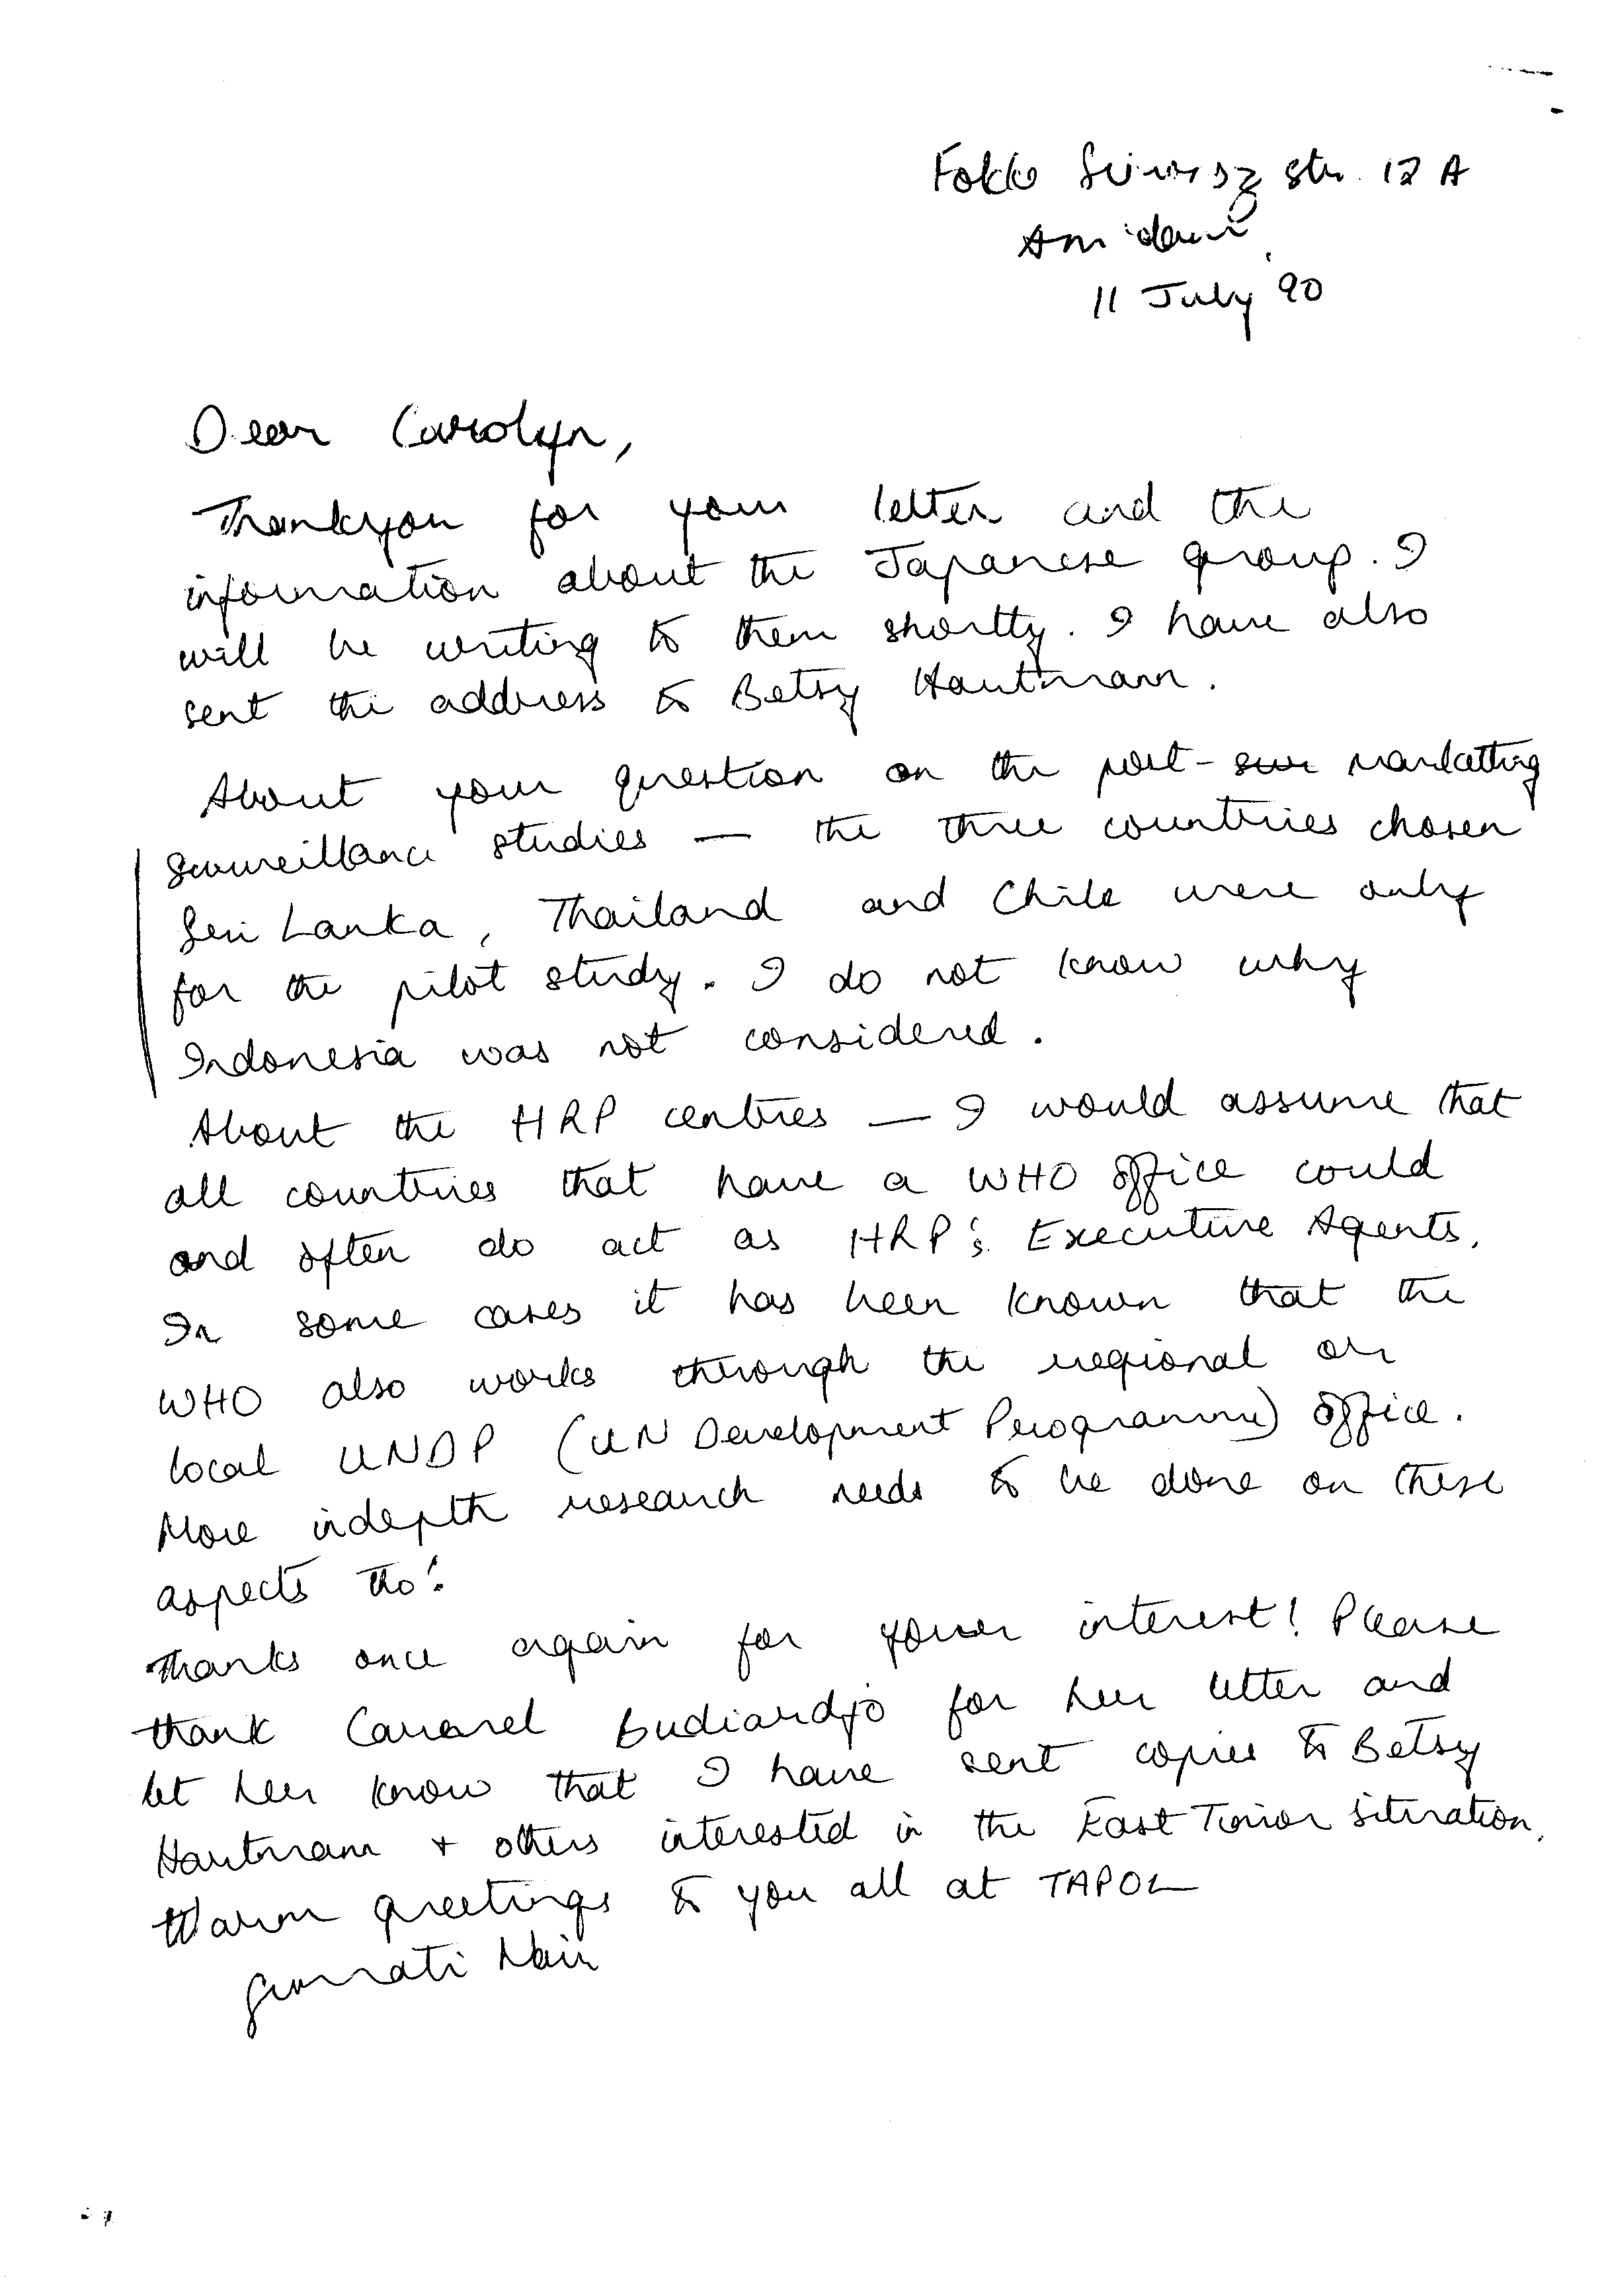 Fokke Simonsz str. 12 A
Am'dam,
11 July '90
Dear Carolyn,
Thankyou for your letter and the
information about the Japanese group. I
will be writing to them shortly. I have also
sent the address to Betsy Hartmann.
About your question on the post-sur marketting
surveillance studies — the three countries chosen
Sri Lanka, Thailand and Chile were only
for the pilot study. I do not know why
Indonesia was not considered.
About the HRP centres — I would assume that
all countries that have a WHO office could
and often do act as HRP's Executive Agents.
In some cases it has been known that the
WHO also works through the regional or
local UNDP (UN Development Programme) office.
More indepth research needs to be done on these
aspects tho'.
Thanks once again for your interest! Please
thank Carmel Budiardjo for her letter and
let her know that I have sent copies to Betsy
Hartmann + others interested in the East Timor situation.
Warm greetings to you all at TAPOL
Sumati Nair